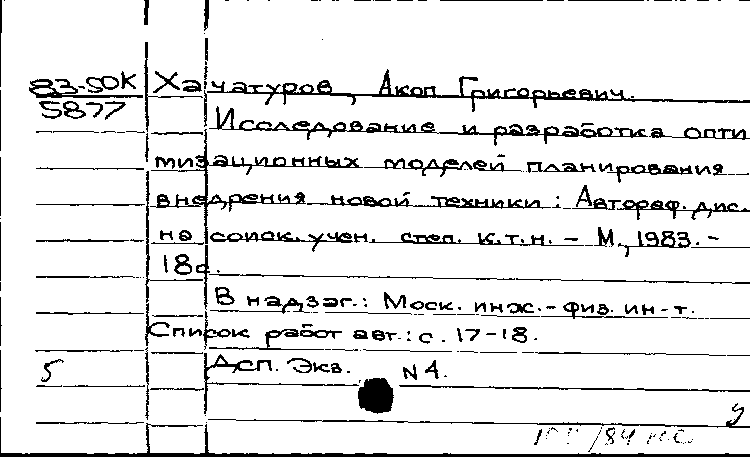 83-50К Хачатуров, Акоп Григорьевич.
5877
Исследование и разработка опти
мизационных моделей планирования
внедрения новой техники : Автореф. дис.
на соиск. учен. степ. к.т.н. - М., 1983. -
18с.
В надзаг.: Моск. инж.-физ. ин-т.
Список работ авт.: с. 17-18.
5 Дсп. Экз. N 4.
у
/84